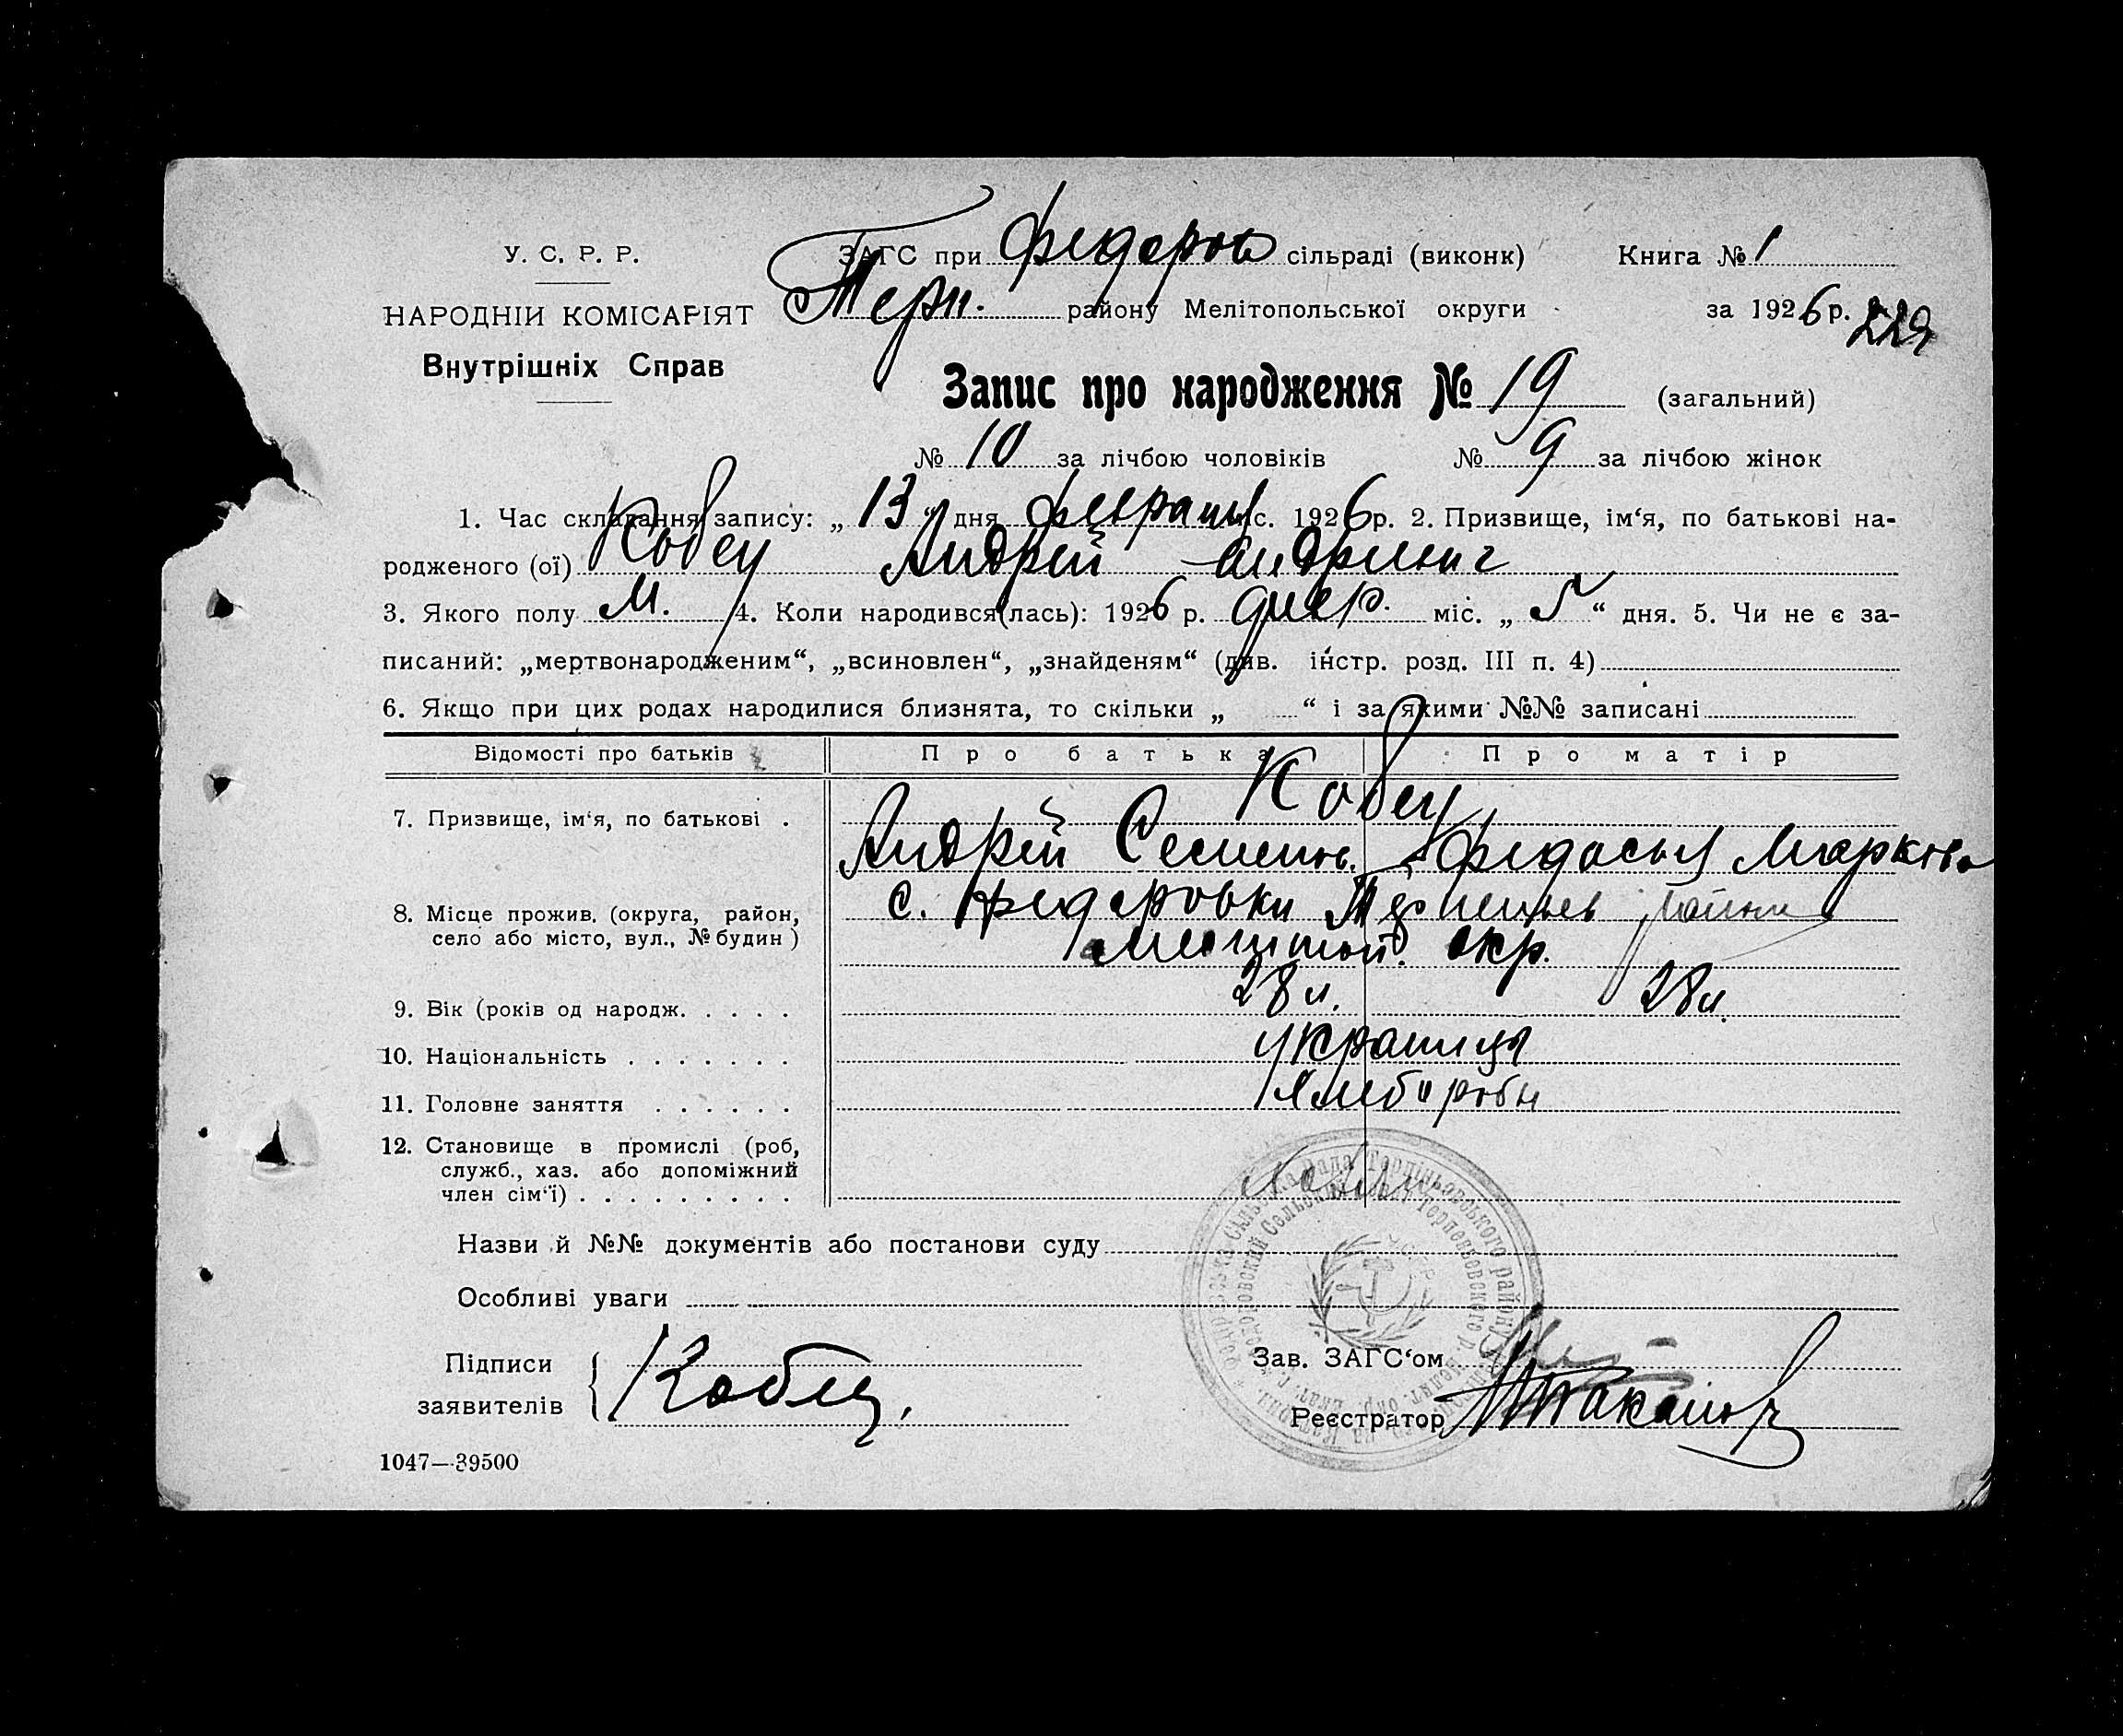 У. С. Р. Р.
НАРОДНІЙ КОМІСАРІЯТ
Внутрішніх Справ
ЗАГС при Федоров сільраді (виконк) Книга № 1
Терп. району Мелітопольської округи за 1926 р.
229
Запис про народження № 19 (загальний)
№ 10 за лічбою чоловіків № 9 за лічбою жінок
1. Час складання запису: „ 13 “ дня февраля міс. 1926 р. 2. Призвище, ім‘я, по батькові на-
родженого (ої) Кобец Андрей Андреевич
3. Якого полу М. 4. Коли народився(лась): 1926 р. февр. міс. „ 5 “ дня. 5. Чи не є за-
писаний: „мертвонародженим“, „всиновлен“, „знайденям“ (див. інстр. розд. III п. 4)
6. Якщо при цих родах народилися близнята, то скільки „ “ і за якими №№ записані
Відомості про батьків Про батька Про матір
7. Призвище, ім‘я, по батькові . Кобец
Андрей Семенов. Федосья Марковна
8. Місце прожив. (округа, район,
село або місто, вул., № будин )
с. Федоровки Терпеньев района
Мелитоп. окр.
9. Вік (років од народж. . . . . 28 л. 28 л.
10. Національність . . . . . . . украинцы
11. Головне заняття . . . . . . Хлеборобы
12. Становище в промислі (роб,
служб., хаз. або допоміжний
член сім‘ї) . . . . . . . . .
Назви й №№ документів або постанови суду
Особливі уваги
Підписи
заявителів
Кобец
Зав. ЗАГС‘ом
Реєстратор
1047—39500